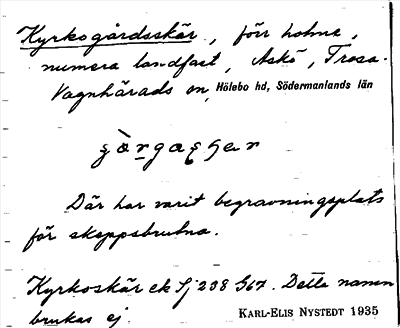 Kyrkogårdsskär, förr holme,
numera landfast, Askö, Trosa-
Vagnhärads sn, Hölebo hd, Södermanlands län
Där har varit begravningsplats
för skeppsbrutna.
Kyrkoskär ek Sj 238 G67. Detta namn
brukas ej.
KARL-ELIS NYSTEDT 1935